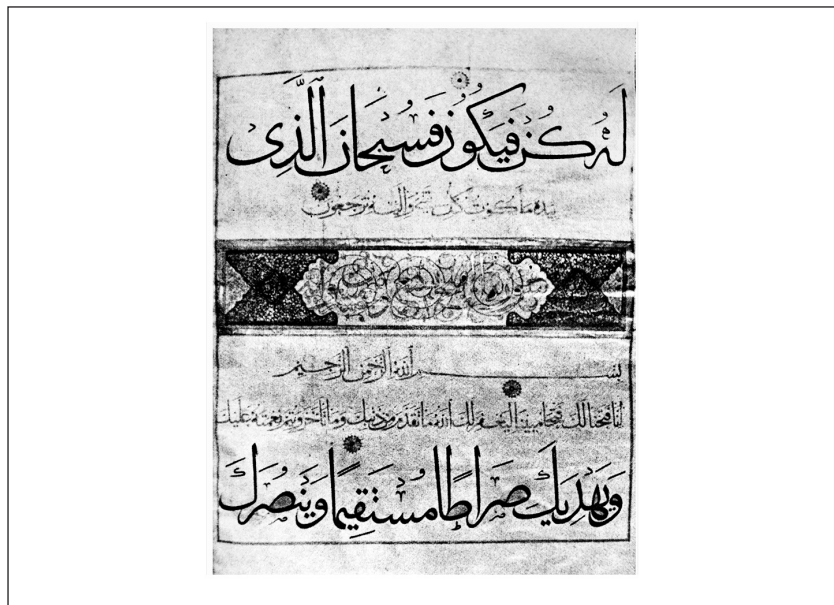 لَهُ كُنْ فَيَكُونُ فَسُبْحَانَ الَّذِى
بيده ملكوت كل شىء واليه ترجعون
بسم الله الرحمن الرحيم
انا فتحنا لك فتحا مبينا ليغفر لك الله ما تقدم من ذنبك وما تاخر ويتم نعمته عليك
وَيَهْدِيَكَ صِرَاطًا مُسْتَقِيمًا وَيَنْصُرَكَ